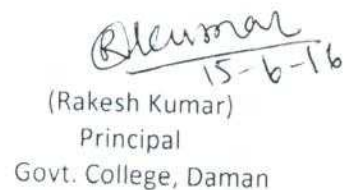 RKumar
15-6-16
(Rakesh Kumar)
Principal
Govt. College, Daman